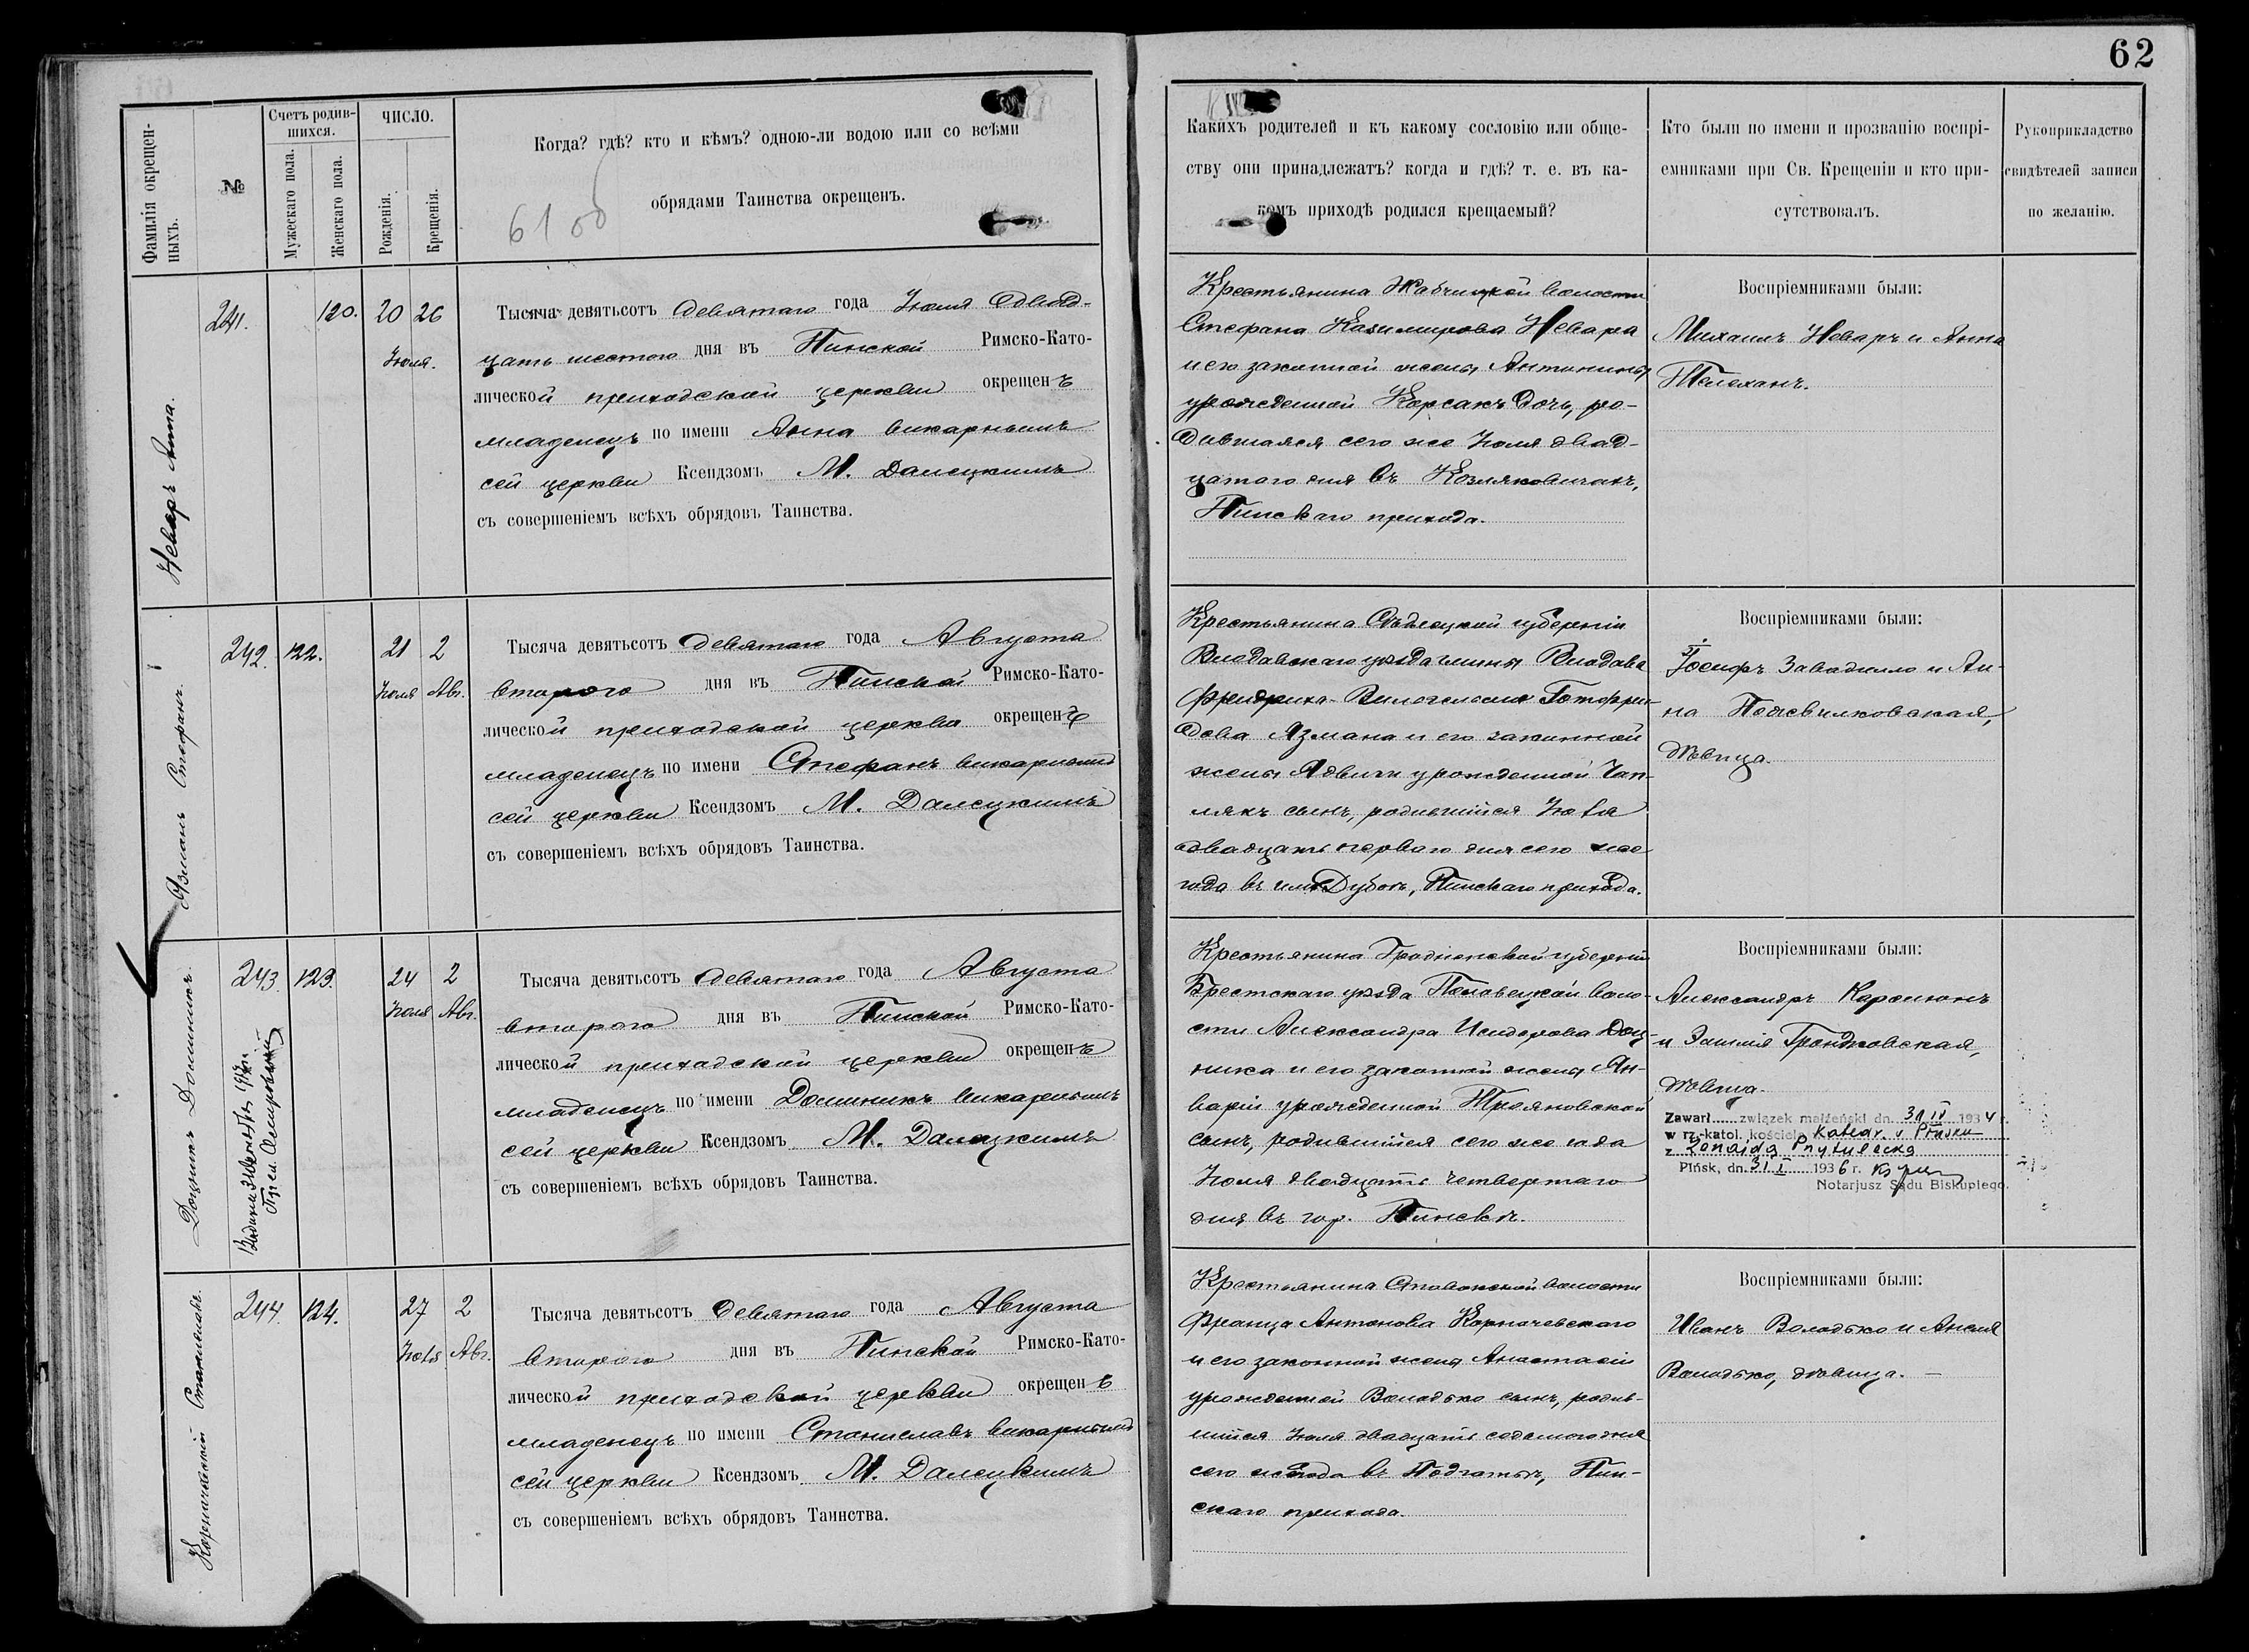 62
Фамилія окрещен-
ныхъ.
№
Счетъ родив-
шихся.
Мужескаго пола.
Женскаго пола.
ЧИСЛО.
Рожденія.
Крещенія.
Когда? гдѣ? кто и кѣмъ? одною-ли водою или со всѣми
обрядами Таинства окрещенъ.
Какихъ родителей и къ какому сословію или обще-
ству они принадлежатъ? когда и гдѣ? т. е. въ ка-
комъ приходѣ родился крещаемый?
Кто были по имени и прозванію воспрі-
емниками при Св. Крещеніи и кто при-
сутствовалъ.
Рукоприкладство
свидѣтелей записи
по желанію.
Неваръ Анна.
241.
120.
20
Іюля.
26
Тысяча девятьсотъ девятаго года Іюля двад-
цать шестого дня въ Пинской Римско-Като-
лической приходской церкви окрещенъ
младенецъ по имени Анна викарнымъ
сей церкви Ксендзомъ М. Далецкимъ
съ совершеніемъ всѣхъ обрядовъ Таинства.
Крестьянина Жабчицкой волости
Стефана Казимирова Невара
и его законной жены Антонины
урожденной Корсакъ дочь, ро-
дившаяся сего же Іюля двад-
цатаго дня въ Козляковичахъ,
Пинскаго прихода.
Воспріемниками были:
Михаилъ Неваръ и Анна
Телеханъ.
Язманъ Стефанъ.
242.
122.
21
Іюля
2
Авг.
Тысяча девятьсотъ девятаго года Августа
второго дня въ Пинской Римско-Като-
лической приходской церкви окрещенъ
младенецъ по имени Стефанъ викарнымъ
сей церкви Ксендзомъ М. Далецкимъ
съ совершеніемъ всѣхъ обрядовъ Таинства.
Крестьянина Сѣдлецкой губерніи
Влодавскаго уѣзда гмины Влодава
Фридриха-Вильгельма Готфри-
дова Язмана и его законной
жены Ядвиги урожденной Чап-
лякъ сынъ, родившійся Іюля
двадцать перваго дня сего же
года въ им. Дубой, Пинскаго прихода.
Воспріемниками были:
Іосифъ Завадило и Ан-
на
дѣвица.
Доцникъ Доминикъ.
243.
123.
24
Іюля
2
Авг.
Тысяча девятьсотъ девятаго года Августа
второго дня въ Пинской Римско-Като-
лической приходской церкви окрещенъ
младенецъ по имени Доминикъ викарнымъ
сей церкви Ксендзомъ М. Далецкимъ
съ совершеніемъ всѣхъ обрядовъ Таинства.
Крестьянина Гродненской губерніи
Брестскаго уѣзда Половецкой воло-
сти Александра Исидорова Доц-
ника и его законной жены Ян-
варіи урожденной Трояновской
сынъ, родившійся сего же года
Іюля двадцать четвертаго
дня въ гор. Пинскѣ.
Воспріемниками были:
Александръ Каролюкъ
и Эмилія Гронджовская,
дѣвица.
Zawarł związek małżeński dn. 31 II 1934 r.
w rz.-katol. kościele Katedr. w Pińsku
z Zenaidą Prytulecką
Pińsk, dn. 31 I 1936 r.
Notarjusz Sądu Biskupiego.
Корначевскій Станиславъ.
244.
124.
27
Іюля
2
Авг.
Тысяча девятьсотъ девятаго года Августа
второго дня въ Пинской Римско-Като-
лической приходской церкви окрещенъ
младенецъ по имени Станиславъ викарнымъ
сей церкви Ксендзомъ М. Далецкимъ
съ совершеніемъ всѣхъ обрядовъ Таинства.
Крестьянина волости
Франца Антонова Корначевскаго
и его законной жены Анастасіи
урожденной Володько сынъ, родив-
шійся Іюля двадцать седьмого дня
сего же года въ Подгатьѣ, Пин-
скаго прихода.
Воспріемниками были:
Иванъ Володько и Анеля
Володько, дѣвица.